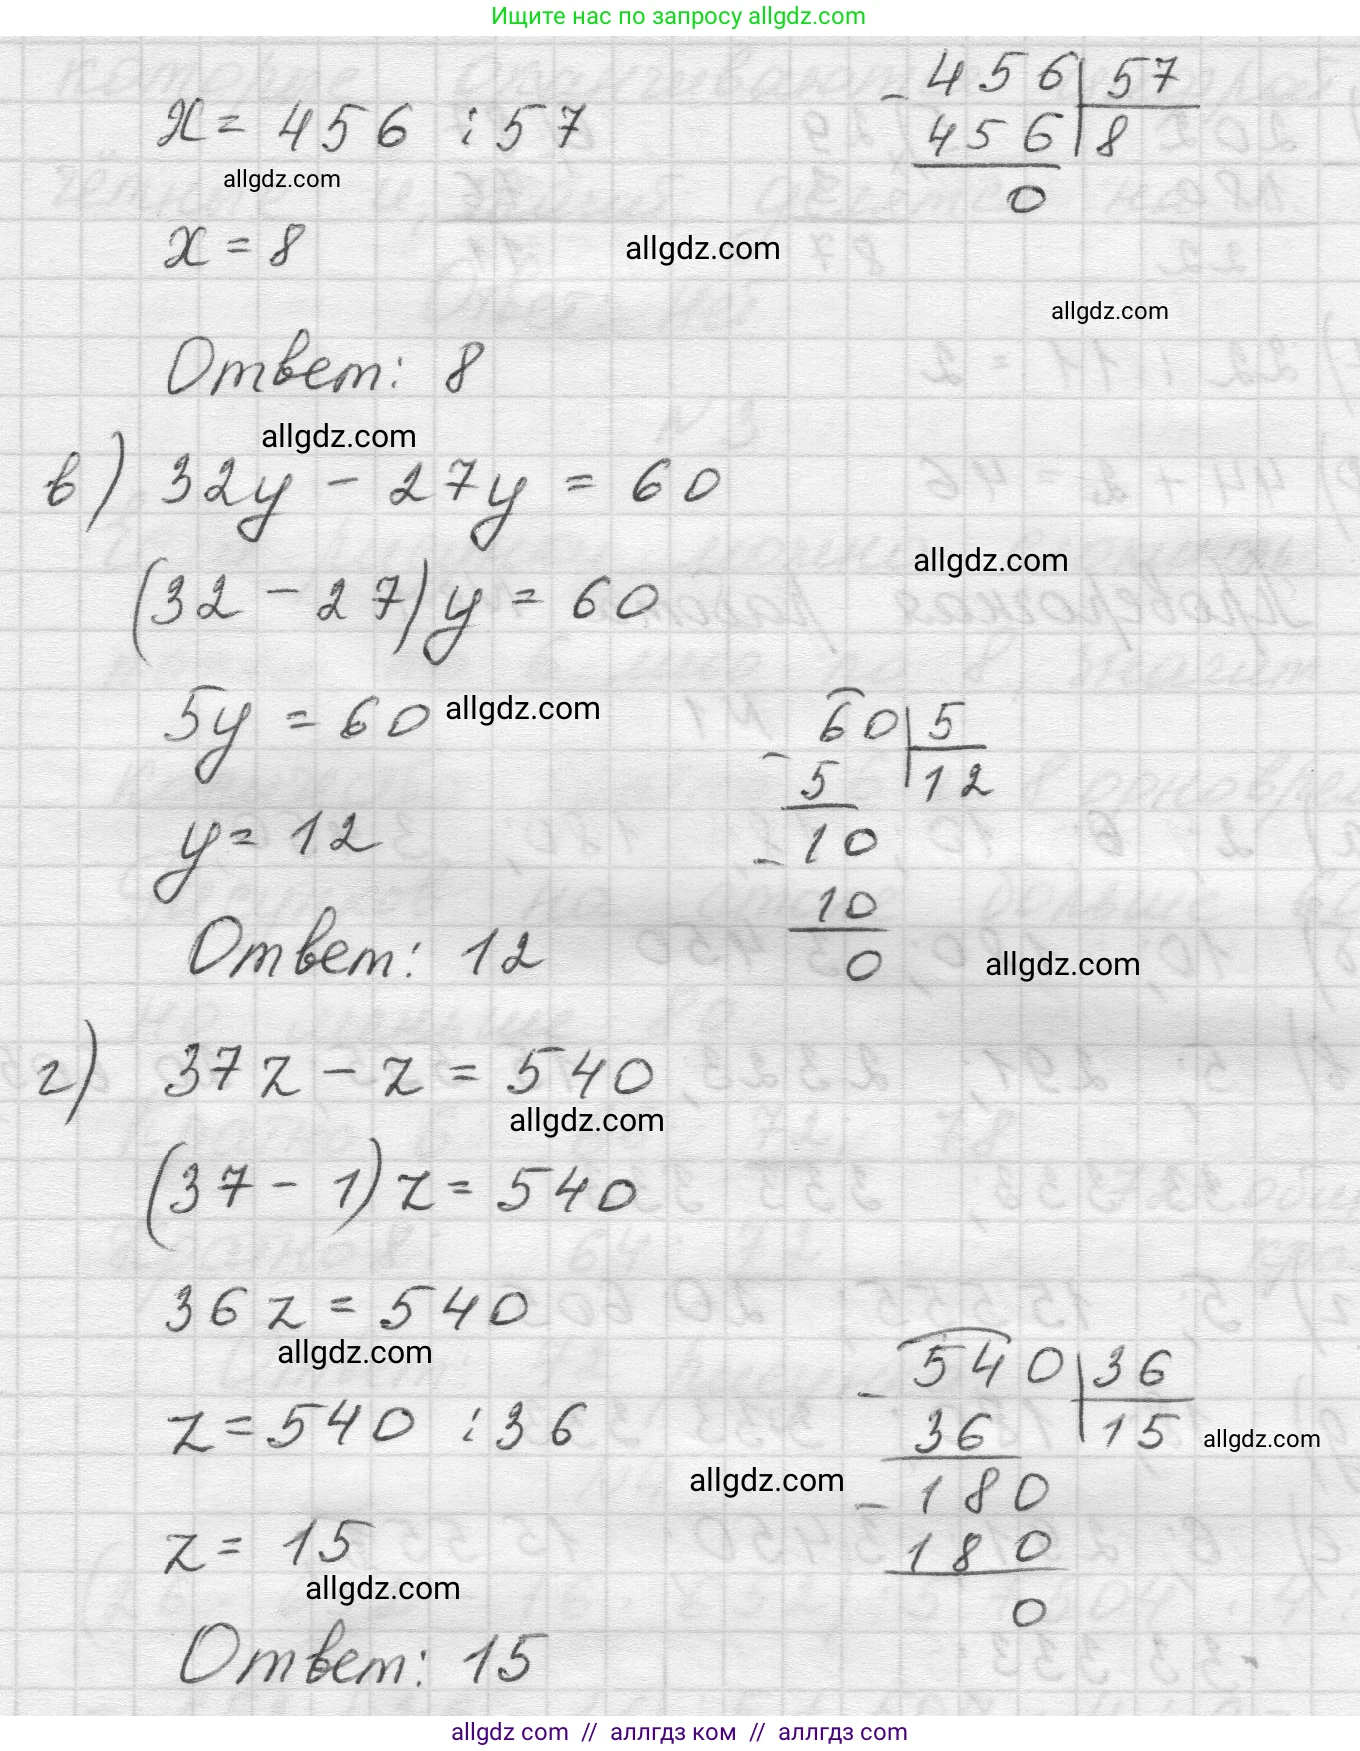 Ищите нас по запросу allgdz.com
x = 456 : 57
456 | 57
- 456 | 8
0
allgdz.com
x = 8
allgdz.com
allgdz.com
Ответ: 8
allgdz.com
в) 32y - 27y = 60
allgdz.com
(32 - 27) y = 60
5y = 60
allgdz.com
60 | 5
- 5 | 12
- 10
10
0
y = 12
Ответ: 12
allgdz.com
г) 37z - z = 540
allgdz.com
(37 - 1) z = 540
36z = 540
allgdz.com
540 | 36
- 36 | 15
- 180
180
0
z = 540 : 36
allgdz.com
allgdz.com
z = 15
allgdz.com
Ответ: 15
allgdz com // аллгдз ком // аллгдз com